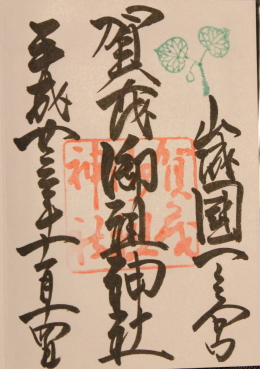 山城國一之宮
賀茂御祖神社
平成廿三年十一月四日
賀茂
御祖
神社